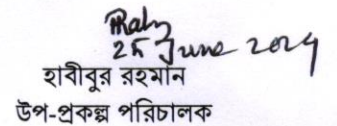 25 June 2024
হাবীবুর রহমান
উপ-প্রকল্প পরিচালক